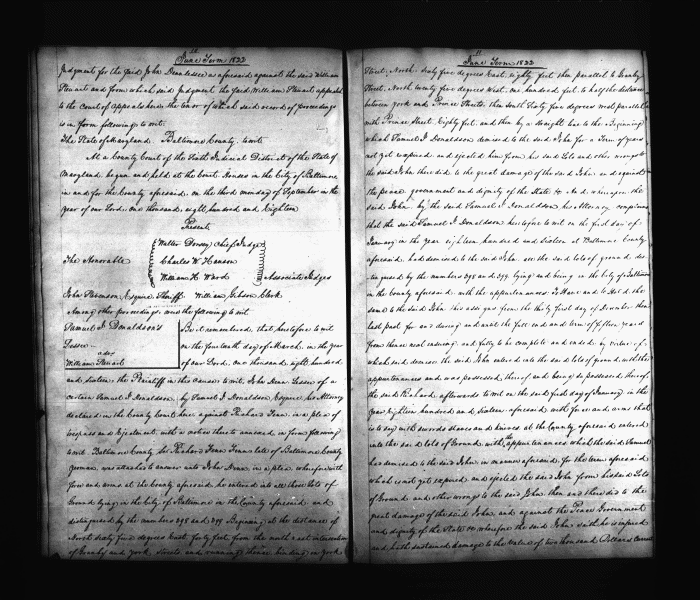 June Term 1822
Judgment for the said John Denn lessee as aforesaid against the said William
Stewart and from which said Judgment the said William Stewart appealed
to the court of appeals here the tenor of which said record of proceedings
is in form following to wit.
The State of Maryland Baltimore County to wit
At a County Court of the Sixth Judicial District of the State of
Maryland began and held at the Court House in the City of Baltimore
in and for the County aforesaid on the third monday of September in the
year of our Lord one thousand eight hundred and Eighteen
Present
Walter Dorsey Chief Judge
The Honorable Charles W Hanson
William H Ward Associate Judges
John Stevenson Esquire Sheriff William Gibson Clerk
Among other proceedings were the following to wit
Samuel I Donaldson's
Lessee
William Stewart
Be it remembered that heretofore to wit
on the fourteenth day of March in the year
of our Lord one thousand eight hundred
and sixteen the Plaintiff in this cause to wit John Denn Lessee of a
certain Samuel I Donaldson by Samuel I Donaldson Esquire his Attorney
declared in the County Court here against Richard Fenn in a plea of
trespass and Ejectment with a notice thereto annexed in form following
to wit. Baltimore County Sct Richard Fenn late of Baltimore County
yeoman was attached to answer unto John Denn in a plea wherefore with
force and arms at the County aforesaid he entered into all those lots of
Ground lying in the City of Baltimore in the County aforesaid and
distinguished by the numbers 398 and 399 Beginning at the distance of
North sixty five degrees East forty feet from the north east intersection
of Granby and York Streets and running thence binding on York
June Term 1822
Street North sixty five degrees East eighty feet then parallel to Granby
Street North twenty five degrees West one hundred feet to half the distance
between york and Prince Streets then South Sixty five degrees west parallel
with Prince Street Eighty feet and then by a straight line to the Beginning
which Samuel I Donaldson demised to the said John for a Term of years
not yet expired and ejected him from his said Lots and other wrongs to
the said John there did to the great damage of the said John and against
the peace government and dignity of the State &c And whereupon the
said John by the said Samuel I Donaldson his Attorney complains
that the said Samuel I Donaldson heretofore to wit on the first day of
January in the year eighteen hundred and sixteen at Baltimore County
aforesaid had demised to the said John the said lots of ground
by the numbers 398 and 399 lying and being in the city of Baltimore
in the County aforesaid with the appurtenances To Have and to Hold the
same to the said John his assigns from the thirty first day of december then
last past for and during and until the full end and term of fifteen years
from thence next ensuing and fully to be complete and ended by virtue of
which said demise the said John entered into the said lots of ground with the
appurtenances and was possessed thereof and being so possessed thereof
the said Richard afterwards to wit on the said first day of January in the
year Eighteen hundred and Sixteen aforesaid with force and arms that
is to say with swords staves and knives at the County aforesaid entered
into the said lots of Ground with the appurtenances which the said Samuel
had demised to the said John in manner aforesaid for the term aforesaid
which is not yet expired and ejected the said John from his said Lots
of Ground and other wrongs to the said John then and there did to the
great damage of the said John and against the Peace Government
and dignity of the State &c wherefore the said John saith he is injured
and hath sustained damage to the value of two thousand Dollars current